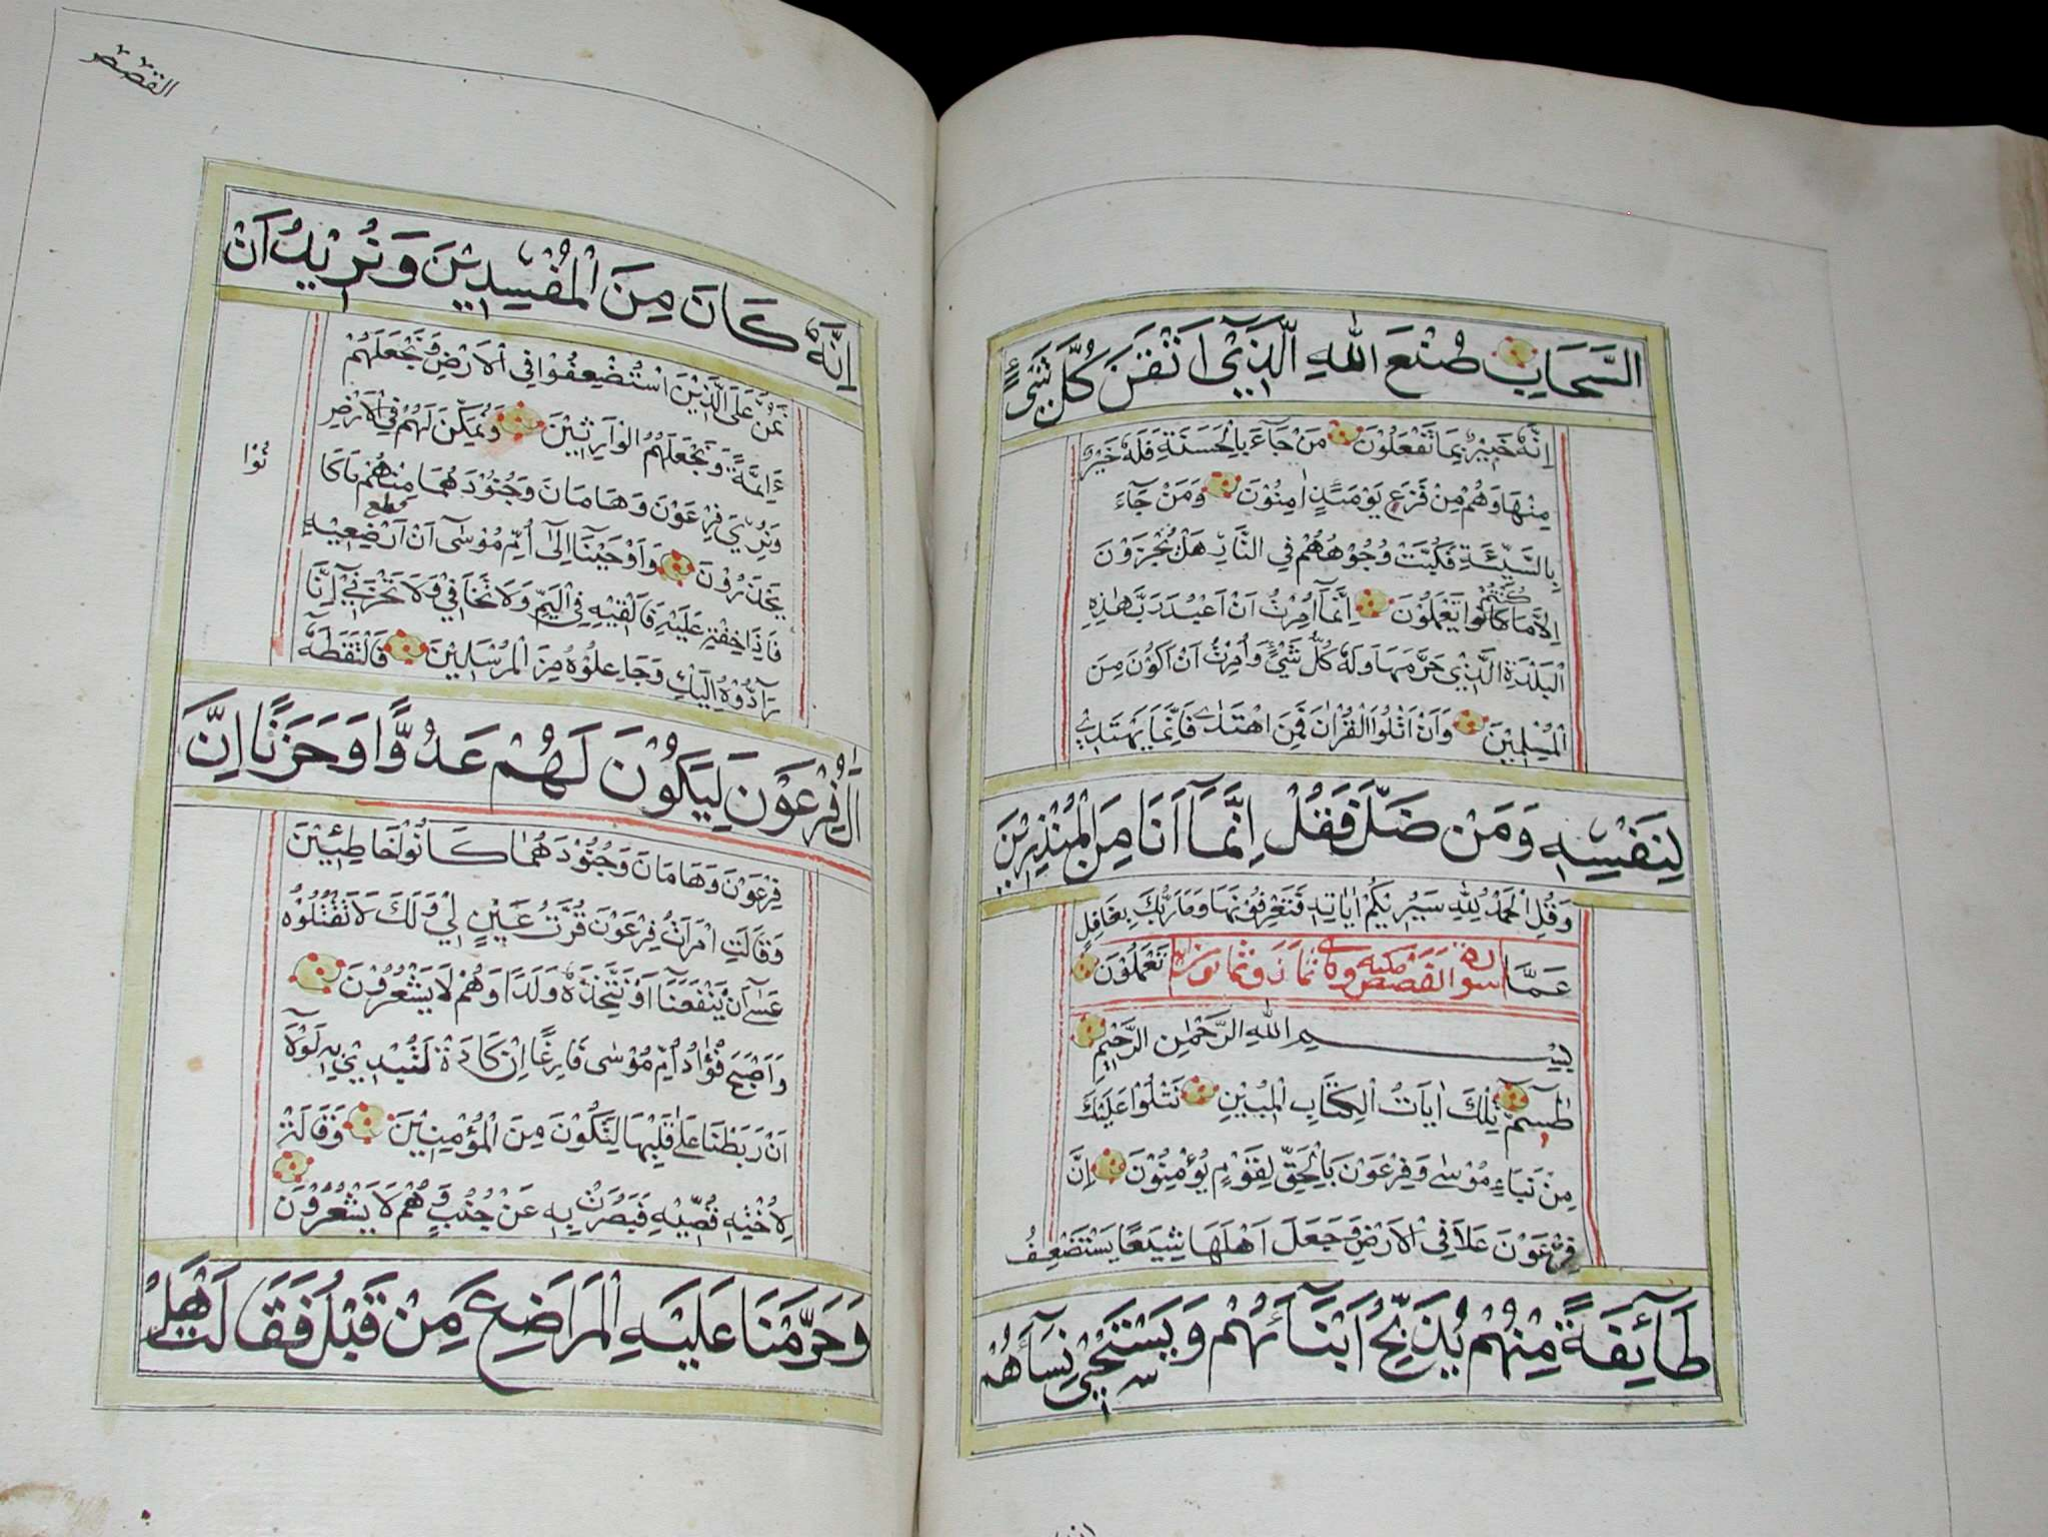 السَّحَابِ صُنْعَ اللهِ الَّذِيْ اَتْقَنَ كُلَّ شَيْءٍ
اِنَّهُ خَبِيْرٌ بِمَا تَفْعَلُوْنَ مَنْ جَآءَ بِالْحَسَنَةِ فَلَهُ خَيْرٌ
مِنْهَا وَهُمْ مِنْ فَزَعٍ يَوْمَئِذٍ اٰمِنُوْنَ وَمَنْ جَآءَ
بِالسَّيِّئَةِ فَكُبَّتْ وُجُوْهُهُمْ فِي النَّارِ هَلْ تُجْزَوْنَ
اِلَّا مَا كَانُوْا كُنْتُمْ تَعْمَلُوْنَ اِنَّمَآ اُمِرْتُ اَنْ اَعْبُدَ رَبَّ هٰذِهِ
الْبَلْدَةِ الَّذِيْ حَرَّمَهَا وَلَهُ كُلُّ شَيْءٍ وَاُمِرْتُ اَنْ اَكُوْنَ مِنَ
الْمُسْلِمِيْنَ وَاَنْ اَتْلُوَا الْقُرْاٰنَ فَمَنِ اهْتَدٰى فَاِنَّمَا يَهْتَدِيْ
لِنَفْسِهِ وَمَنْ ضَلَّ فَقُلْ اِنَّمَآ اَنَا مِنَ الْمُنْذِرِيْنَ
وَقُلِ الْحَمْدُ لِلّٰهِ سَيُرِيْكُمْ اٰيَاتِهِ فَتَعْرِفُوْنَهَا وَمَا رَبُّكَ بِغَافِلٍ
عَمَّا تَعْمَلُوْنَ
سورة القصص مكية وهي ثمان وثمانون
بِسْمِ اللهِ الرَّحْمٰنِ الرَّحِيْمِ
طٰسٓمّ تِلْكَ اٰيَاتُ الْكِتَابِ الْمُبِيْنِ نَتْلُوْا عَلَيْكَ
مِنْ نَبَاِ مُوْسٰى وَفِرْعَوْنَ بِالْحَقِّ لِقَوْمٍ يُؤْمِنُوْنَ اِنَّ
فِرْعَوْنَ عَلَا فِي الْاَرْضِ وَجَعَلَ اَهْلَهَا شِيَعًا يَسْتَضْعِفُ
طَآئِفَةً مِنْهُمْ يُذَبِّحُ اَبْنَآءَهُمْ وَيَسْتَحْيٖ نِسَآءَهُمْ
القصص
اِنَّهُ كَانَ مِنَ الْمُفْسِدِيْنَ وَنُرِيْدُ اَنْ
نَمُنَّ عَلَى الَّذِيْنَ اسْتُضْعِفُوْا فِي الْاَرْضِ وَنَجْعَلَهُمْ
ءَاِمَّةً وَنَجْعَلَهُمُ الْوَارِثِيْنَ وَنُمَكِّنَ لَهُمْ فِي الْاَرْضِ
وَنُرِيَ فِرْعَوْنَ وَهَامَانَ وَجُنُوْدَهُمَا مِنْهُمْ مَا كَا
نُوْا
يَحْذَرُوْنَ وَاَوْحَيْنَآ اِلٰى اُمِّ مُوْسٰى اَنْ اَرْضِعِيْهِ
فَاِذَا خِفْتِ عَلَيْهِ فَاَلْقِيْهِ فِي الْيَمِّ وَلَا تَخَافِيْ وَلَا تَحْزَنِيْ اِنَّا
رَآدُّوْهُ اِلَيْكِ وَجَاعِلُوْهُ مِنَ الْمُرْسَلِيْنَ فَالْتَقَطَهُ
اٰلُ فِرْعَوْنَ لِيَكُوْنَ لَهُمْ عَدُوًّا وَحَزَنًا اِنَّ
فِرْعَوْنَ وَهَامَانَ وَجُنُوْدَهُمَا كَانُوْا خَاطِئِيْنَ
وَقَالَتِ امْرَاَتُ فِرْعَوْنَ قُرَّتُ عَيْنٍ لِيْ وَلَكَ لَا تَقْتُلُوْهُ
عَسٰٓى اَنْ يَنْفَعَنَآ اَوْ نَتَّخِذَهُ وَلَدًا وَهُمْ لَا يَشْعُرُوْنَ
وَاَصْبَحَ فُؤَادُ اُمِّ مُوْسٰى فَارِغًا اِنْ كَادَتْ لَتُبْدِيْ بِهِ لَوْلَآ
اَنْ رَبَطْنَا عَلٰى قَلْبِهَا لِتَكُوْنَ مِنَ الْمُؤْمِنِيْنَ وَقَالَتْ
لِاُخْتِهِ قُصِّيْهِ فَبَصُرَتْ بِهِ عَنْ جُنُبٍ وَهُمْ لَا يَشْعُرُوْنَ
وَحَرَّمْنَا عَلَيْهِ الْمَرَاضِعَ مِنْ قَبْلُ فَقَالَتْ هَلْ